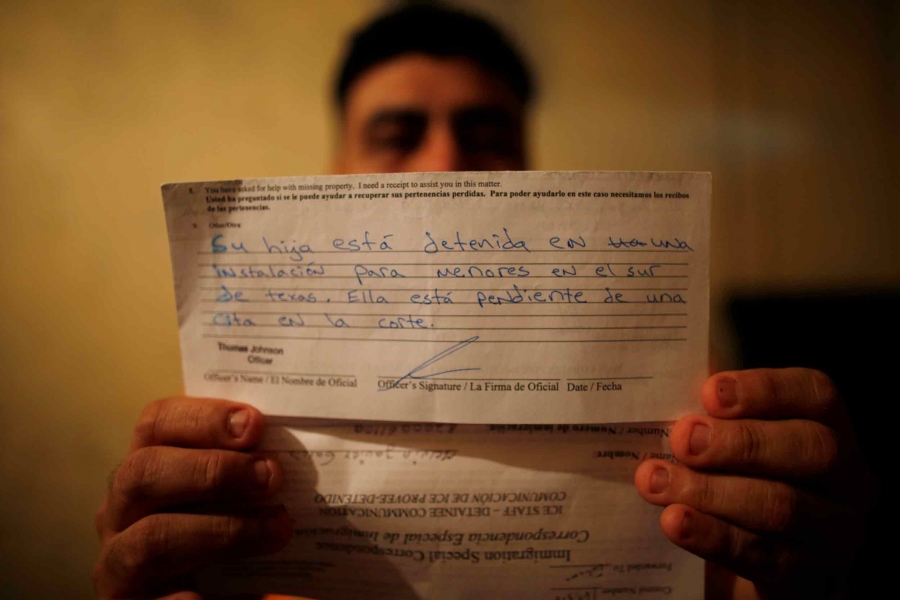 8. You have asked for help with missing property. I need a receipt to assist you in this matter.
Usted ha preguntado si se le puede ayudar a recuperar sus pertenencias perdidas. Para poder ayudarlo en este caso necesitamos los recibos
de las pertenencias.
9. Other/Otro
Su hija está detenida en una
instalación para menores en el sur
de texas. Ella está pendiente de una
cita en la corte.
Thomas Johnson
Officer
Officer's Name / El Nombre de Oficial Officer's Signature / La Firma de Oficial Date / Fecha
Control Number
Forwarded To
Immigration Special Correspondence
Correspondencia Especial de Inmigración
ICE STAFF – DETAINEE COMMUNICATION
COMUNICACIÓN DE ICE PROVEE-DETENIDO
Name / Nombre:
Number / Numero de inmigración